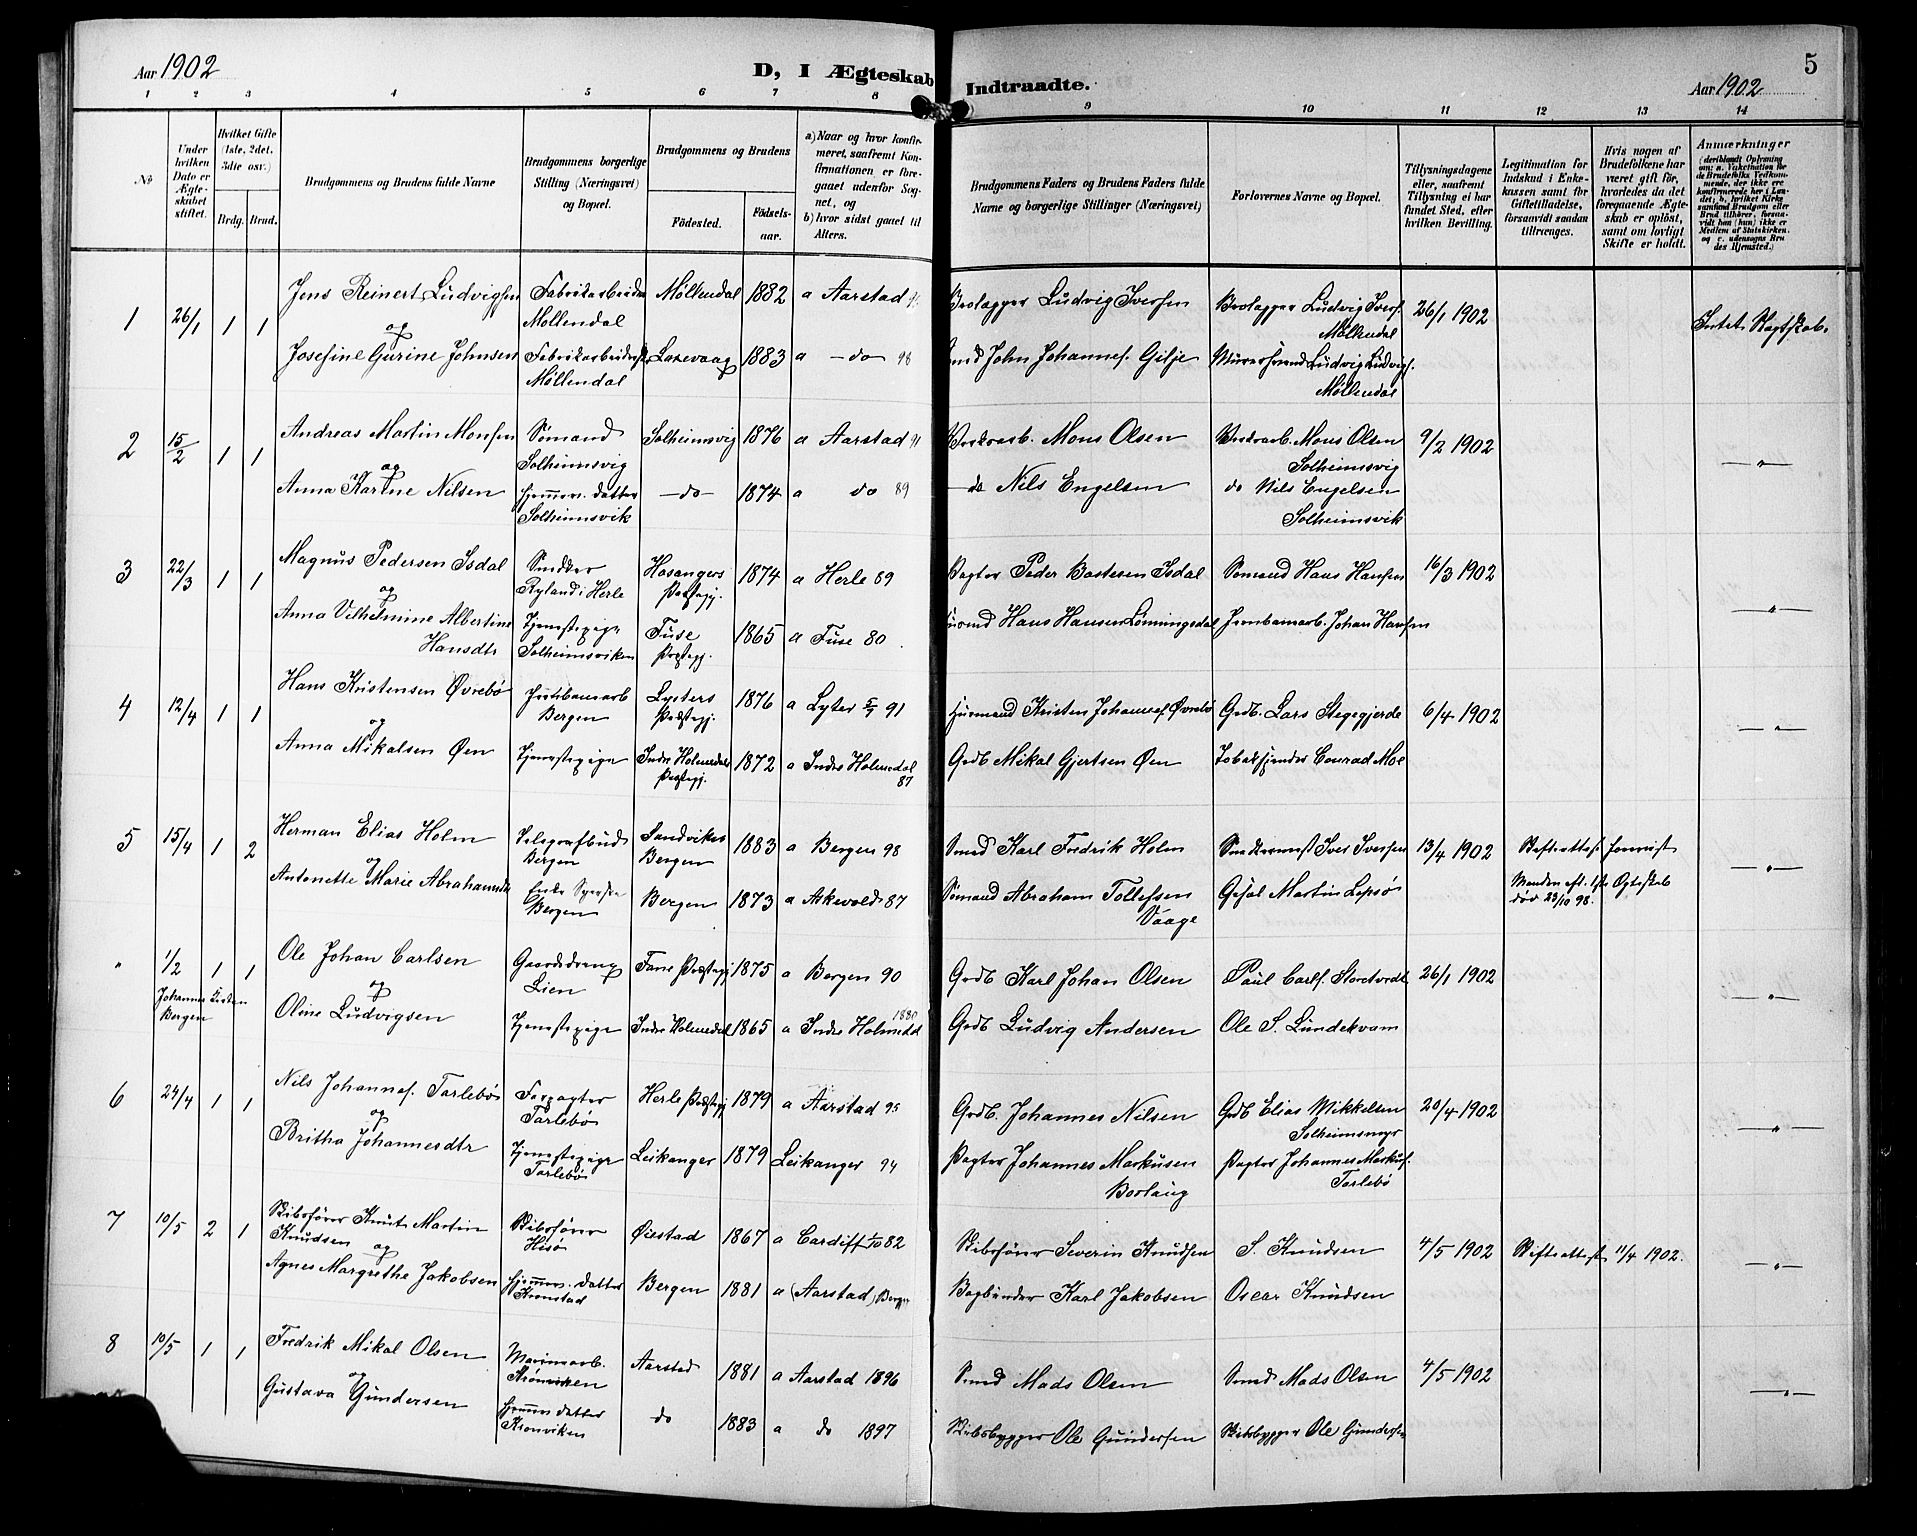 Aar 1902
D, I Ægteskab
Indtraadte.
Aar 1902
5
1 2 3 4 5 6 7 8
9 10 11 12 13 14
No
Under hvilken Dato er Ægteskabet stiftet.
Hvilket Gifte (1ste, 2det, 3die osv.)
Brdg. Brud.
Brudgommens og Brudens fulde Navne
Brudgommens borgerlige Stilling (Næringsvei) og Bopæl.
Brudgommens og Brudens
Födested.
Födsels-aar.
a) Naar og hvor konfirmeret, saafremt Konfirmationen er foregaaet udenfor Sognet, og
b) hvor sidst gaaet til Alters.
Brudgommens Faders og Brudens Faders fulde Navne og borgerlige Stillinger (Næringsvei)
Forlovernes Navne og Bopæl.
Tillysningsdagene eller, saafremt Tillysning ei har fundet Sted, efter hvilken Bevilling.
Legitimation for Indskud i Enkekassen samt for Giftetilladelse, forsaavidt saadan tiltrænges.
Hvis nogen af Brudefolkene har været gift för, hvorledes da det foregaaende Ægteskab er oplöst, samt om lovligt Skifte er holdt.
Anmærkninger
1 26/1 1 1 Jens Reinert Ludvigsen Fabrikarbeider Møllendal 1882 a Aarstad Brolægger Ludvig Iversen Brolægger Ludvig Ivers. 26/1 1902 Intet Slegtskab.
og Møllendal Møllendal
Josefine Gurine Johnsen Fabrikarbeiderske Laxevaag 1883 a - do - 98 Smed John Johannes. Gilje Murersvend Ludvig Ludvigs.
Møllendal Møllendal
2 15/2 1 1 Andreas Martin Monsen Sømand Solheimsvig 1876 a Aarstad 91 Værkarb. Mons Olsen Værkarb. Mons Olsen 9/2 1902 - " -
og Solheimsvig Solheimsvig
Anna Karine Nilsen hjemmev. datter - do - 1874 a do 89 - do Nils Engelsen do Nils Engelsen
Solheimsvik Solheimsvik
3 22/3 1 1 Magnus Pedersen Isdal Snedker Hosangers 1874 a Herle 89 Pagter Peder Bastesen Isdal Sømand Hans Hansen 16/3 1902 - " -
og Ryland i Herle Præstegj.
Anna Vilhelmine Albertine Tjenestepige Fuse 1865 a Fuse 80 Husmd Hans Hansen Lønningsdal Jernbanearb. Johan Hansen
Hansdtr Solheimsviken Præstegj.
4 12/4 1 1 Hans Kristensen Øvrebø Jernbanearb Lysters 1876 a Lyster 91 Husmand Kristen Johannes. Øvrebø Grdb. Lars Stegegjerde 6/4 1902 - " -
og Bergen Præstegj.
Anna Mikalsen Øen Tjenestepige Indre Holmedals 1872 a Indre Holmedal Grdb Mikal Gjertsen Øen Tobakspinder Conrad Moe
Præstegj. 87
5 15/4 1 2 Herman Elias Holm Telegrafbud Sandviken 1883 a Bergen 98 Smed Karl Fredrik Holm Snedkermest Iver Iversen 13/4 1902 Skifteattest forevist - " -
og Bergen Bergen
Antonette Marie Abrahamsdtr Enke Syerske Bergen 1873 a Askevold 87 Sømand Abraham Tollefsen Gesel Martin Lepsø Manden eft. 1ste Ægteskab
Bergen Vaage død 23/10 98.
" 1/2 1 1 Ole Johan Carlsen Gaardsdreng Fane Præstegj 1875 a Bergen 90 Grdb Karl Johan Olsen Paul Carls. Storetveit 26/1 1902 - " -
Johannes Kirken og Lien
Bergen Oline Ludvigsen Tjenestepige Indre Holmedal 1865 a Indre Holmedal 1880 Grdb Ludvig Andersen Ole S. Lundekvam
6 24/4 1 1 Nils Johannes. Tarlebø Forpagter Herle Præstegj 1879 a Aarstad 95 Grdb. Johannes Nilsen Grdb Elias Mikkelsen 20/4 1902 - " -
og Tarlebø Solheimsmyr
Britha Johannesdtr Tjenestepige Leikanger 1879 Leikanger 94 Pagter Johannes Markusen Pagter Johannes Markus.
Tarlebø Borlaug Tarlebø
7 10/5 2 1 Skibsfører Knut Martin Skibsfører Øiestad 1867 a Cardiff 1/10 82 Skibsfører Severin Knudsen S. Knudsen 4/5 1902 Skifteattest 11/4 1902. - " -
Knudsen og Hisø
Agnes Margrethe Jakobsen hjemmev. datter Bergen 1881 a (Aarstad) Bergen Bogbinder Karl Jakobsen Oscar Knudsen
Kronstad
8 10/5 1 1 Fredrik Mikal Olsen Marinearb. Aarstad 1881 a Aarstad 1896 Smed Mads Olsen Smed Mads Olsen 4/5 1902 - " -
og Kronviken
Gustava Gundersen hjemmev datter do 1883 a do 1897 Skibsbygger Ole Gundersen Skibsbygger Ole Gundersen
Kronviken